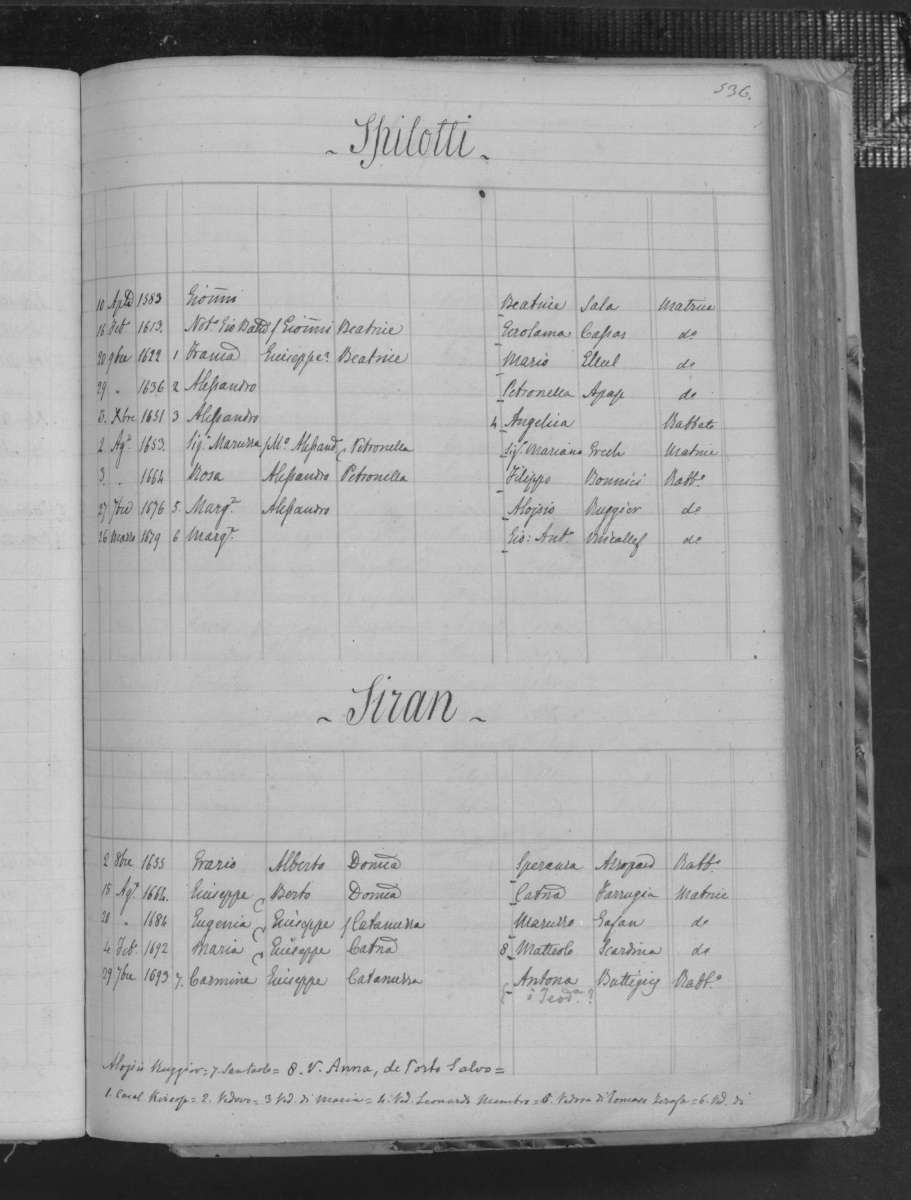 536.
~ Spilotti ~
10 Aple 1583 Gioñni Beatrice Sala Matrice
16 Feb. 1613. Notr Gio Batta f Gioñni Beatrice Gerolama Cassar do
20 9bre 1622 1 Franca Giuseppe Beatrice Mario Ellul do
29 " 1636 2 Alessandro Petronella Apap do
3. Xbre 1651 3 Alessandro 4 Angelica Rabbato
2. Ago 1653. Siga Maruzza f Mo Alessand f Petronella Sigr Mariano Grech Matrice
3 " 1664 Rosa Alessandro Petronella Filippo Bonnici Rabbo
27 7bre 1676 5. Marga Alessandro Aloisio Ruggier do
26 Marzo 1679 6 Marga Gio: Anto Micallef do
~ Siran ~
2 8bre 1655 Grazio Alberto Domca Speranza Azzopard Rabbo
18 Ago 1664. Giuseppe Berto Domca Catna Farrugia Matrice
20 " 1684 Eugenia Giuseppe f Catanuzza Maruzzo Gafan do
4 Feb. 1692 Maria Giuseppe Catna 8 Matteolo Scardina do
29 7bre 1693 7. Carmine Giuseppe Catanuzza Antona Battigieg Rabbo
o Teoda ?
Aloisio Ruggier = 7. San Paolo = 8. V. Anna, de Porto Salvo =
1. Casal Kircop = 2. Vedovo = 3 Vd. di Maria = 4. Vd. Leonardo Mambro = 5. Vedova di Tomaso Zerafa = 6. Vd. di